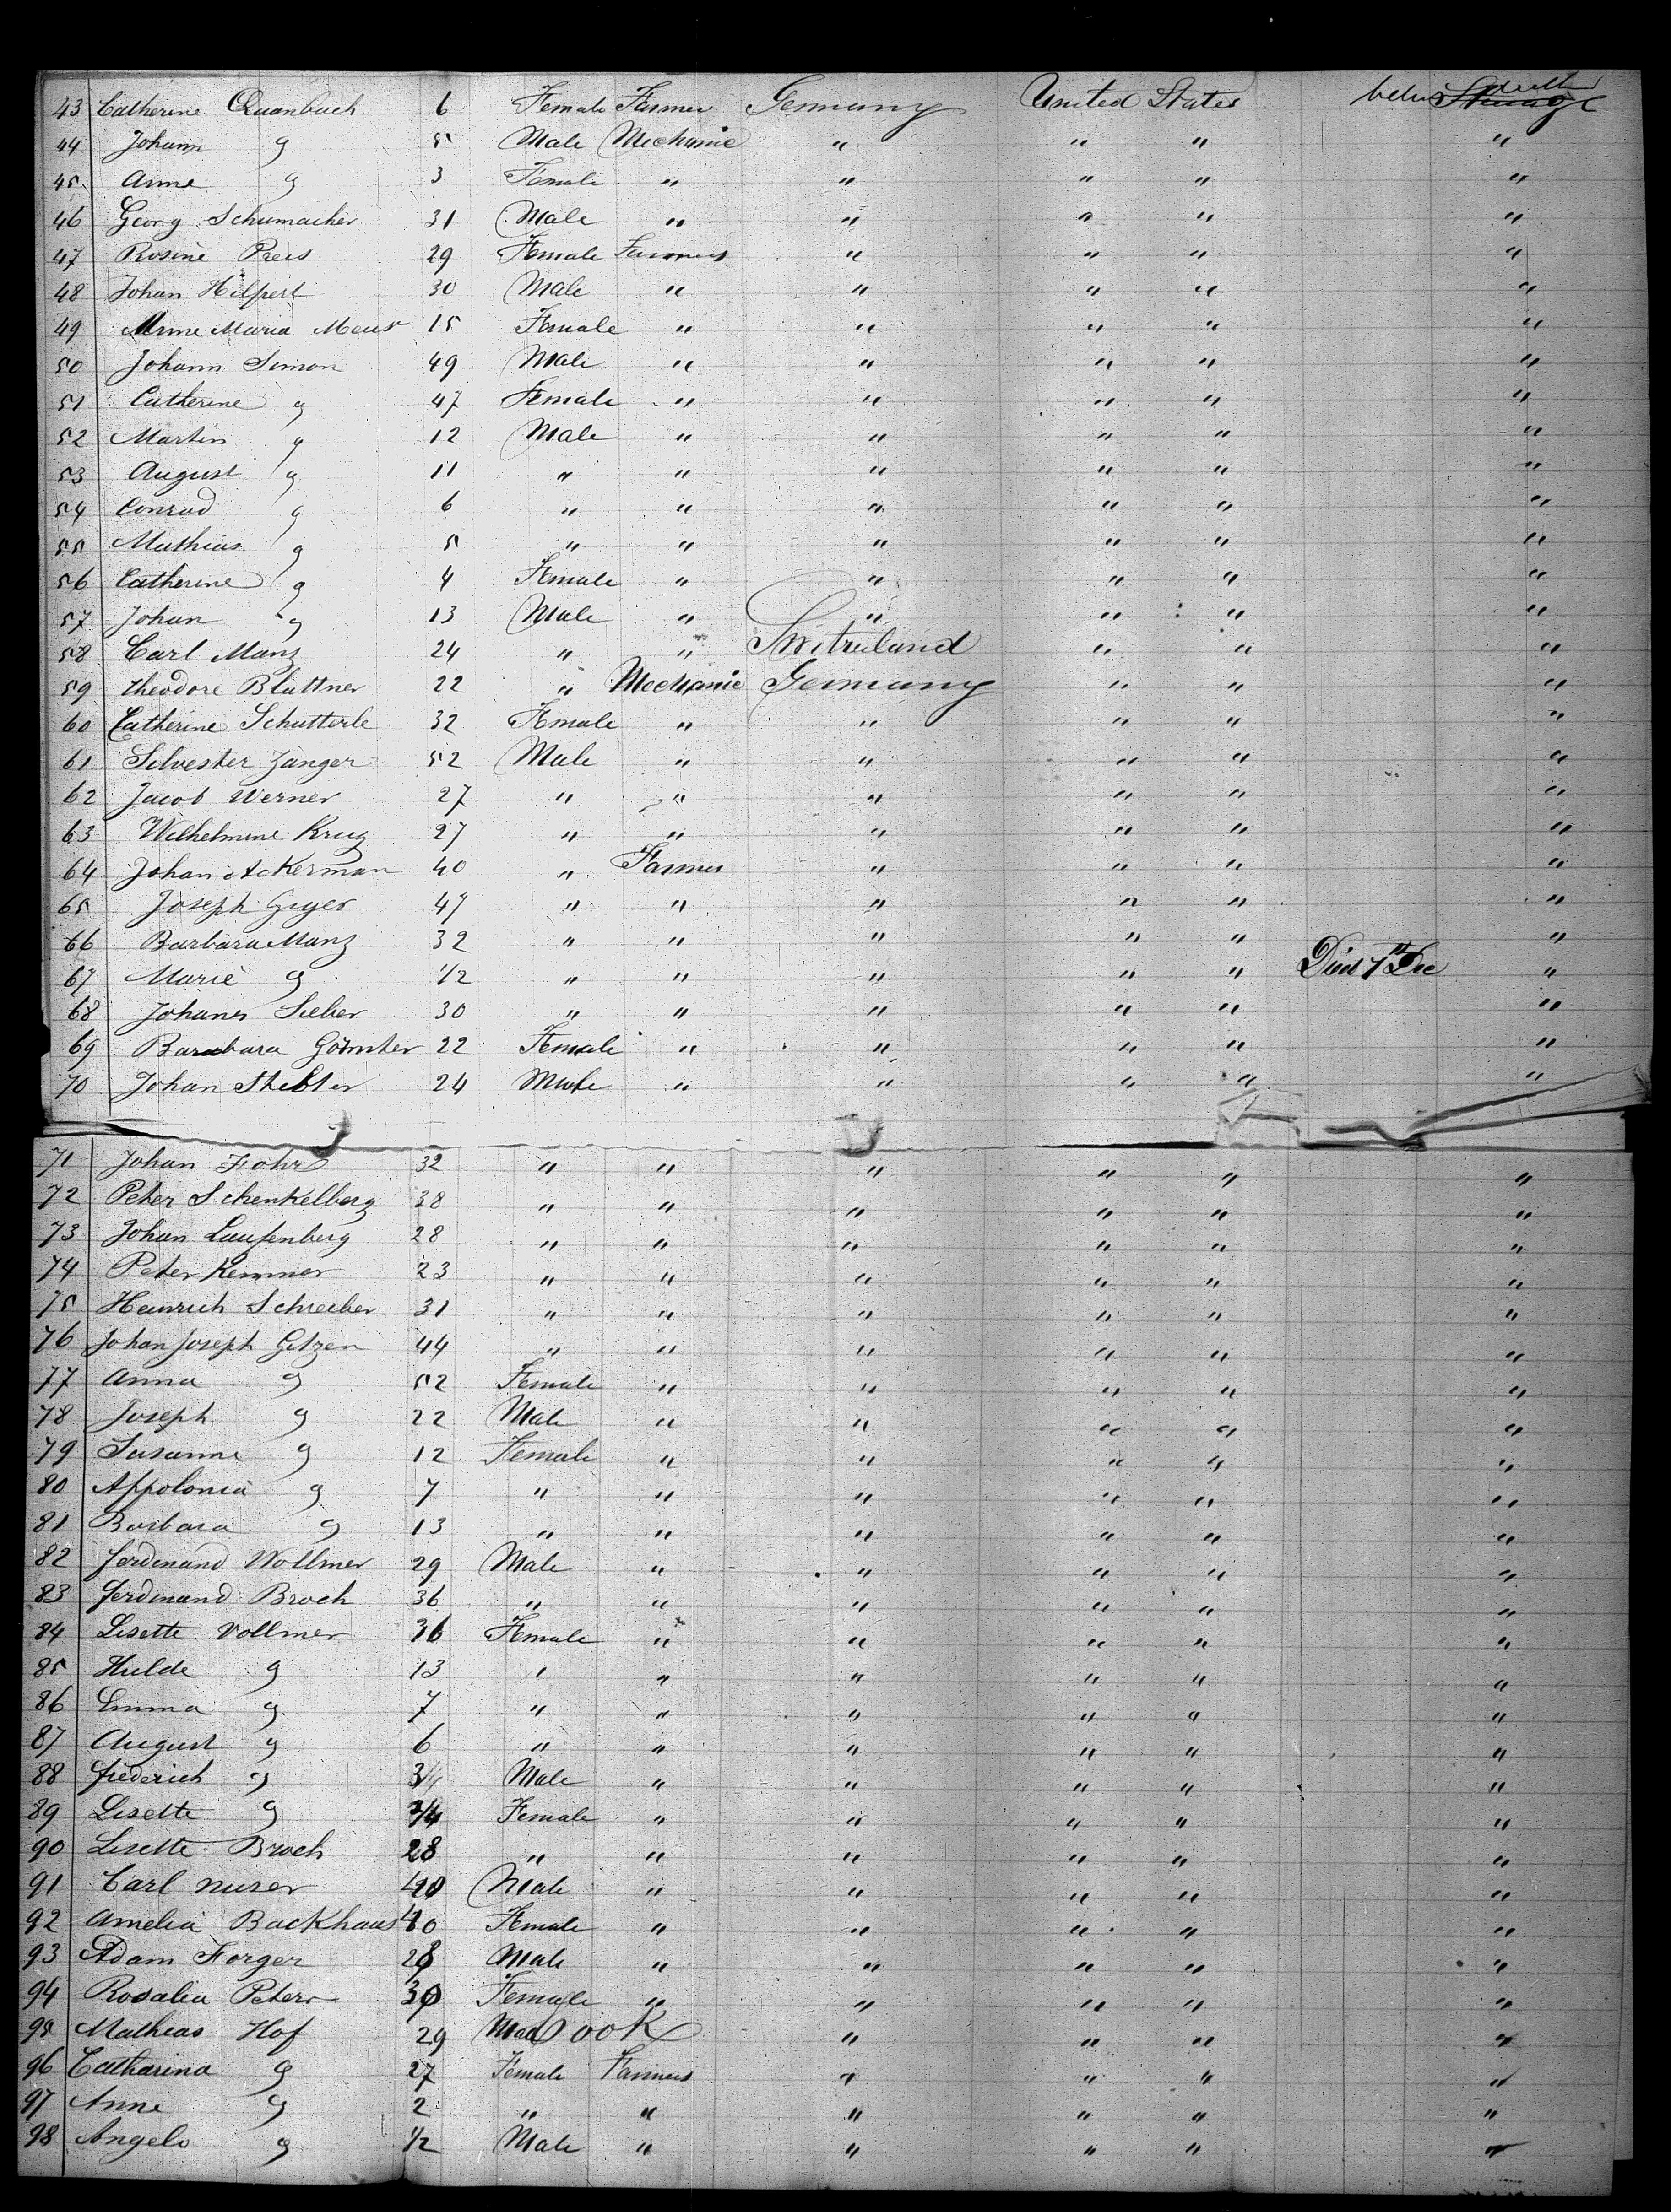 43 Catherine Quanbach 6 Female Farmer Germany United States
44 Johann " 5 Male Mechanic " " " "
45 Anne " 3 Female " " " " "
46 Georg Schumacher 31 Male " " " " "
47 Rosine Preis 29 Female Farmers " " " "
48 Johan Hilpert 30 Male " " " " "
49 Anne Maria 15 Female " " " " "
50 Johann Simon 49 Male " " " " "
51 Catherine " 47 Female " " " " "
52 Martin " 12 Male " " " " "
53 August " 11 " " " " " "
54 Conrad " 6 " " " " " "
55 Mathias " 5 " " " " " "
56 Catherine " 4 Female " " " " "
57 Johan " 13 Male " " " " "
58 Carl Manz 24 " " Switzerland " " "
59 Theodore Blattner 22 " Mechanic Germany " " "
60 Catherine Schutterle 32 Female " " " " "
61 Silvester Zanger 52 Male " " " " "
62 Jacob Werner 27 " " " " " "
63 Wilhelmine Krug 27 " " " " " "
64 Johan Ackerman 40 " Farmer " " " "
65 Joseph Geyer 47 " " " " " "
66 Barbara Manz 32 " " " " " "
67 Marie " 1/2 " " " " " Died 7th Dec "
68 Johanes Sieber 30 " " " " " "
69 Barabara 22 Female " " " " "
70 Johan 24 Male " " " " "
71 Johan Fohr 32 " " " " " "
72 Peter Schenkelberg 38 " " " " " "
73 Johan Laufenberg 28 " " " " " "
74 Peter Kemmer 23 " " " " " "
75 Heinrich Schreiber 31 " " " " " "
76 Johan Joseph Getzen 44 " " " " " "
77 Anna " 52 Female " " " " "
78 Joseph " 22 Male " " " " "
79 Susanne " 12 Female " " " " "
80 Appolonia " 7 " " " " " "
81 Barbara " 13 " " " " " "
82 Ferdinand Wollmer 29 Male " " " " "
83 Ferdinand Broch 36 " " " " " "
84 Lisette Vollmer 36 Female " " " " "
85 Hulde " 13 " " " " " "
86 Emma " 7 " " " " " "
87 August " 6 " " " " " "
88 Friederich " Male " " " " "
89 Lisette " 3/4 Female " " " " "
90 Lisette Broch 28 " " " " " "
91 Carl Nuser Male " " " " "
92 Amelia Backhaus 40 Female " " " " "
93 Adam Forger Male " " " " "
94 Rosalia Peters 30 Female " " " " "
95 Mathias Hof 29 Male Cook " " " "
96 Catharina " 27 Female Farmers " " " "
97 Anne " 2 " " " " " "
98 Angelo " 1/2 Male " " " " "